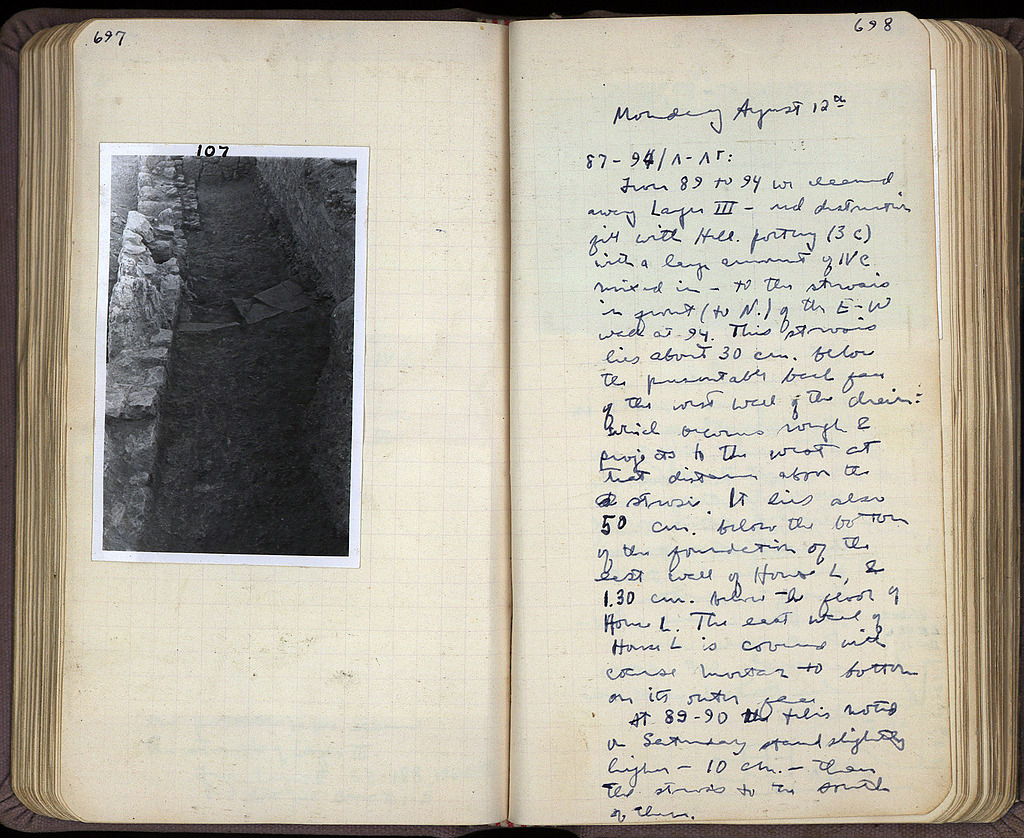 697
107
698
Monday August 12th
87-94/Λ-ΛΓ:
From 89 to 94 we cleaned
away Layer III - red destruction
fill with Hell. pottery (3 C)
with a large amount of IV C
mixed in - to the strosis
in front (to N.) of the E-W
wall at 94. This strosis
lies about 30 cm. below
the presentable back face
of the west wall of the drain:
which becomes rough &
projects to the west at
that distance above the
strosis. It lies also
50 cm. below the bottom
of the foundation of the
east wall of House L, &
1.30 cm. below the floor of
House L. The east wall of
House L is covered with
coarse mortar to bottom
on its outer face.
At 89-90 the tiles noted
on Saturday stand slightly
higher - 10 cm. - than
the strosis to the south
of them.